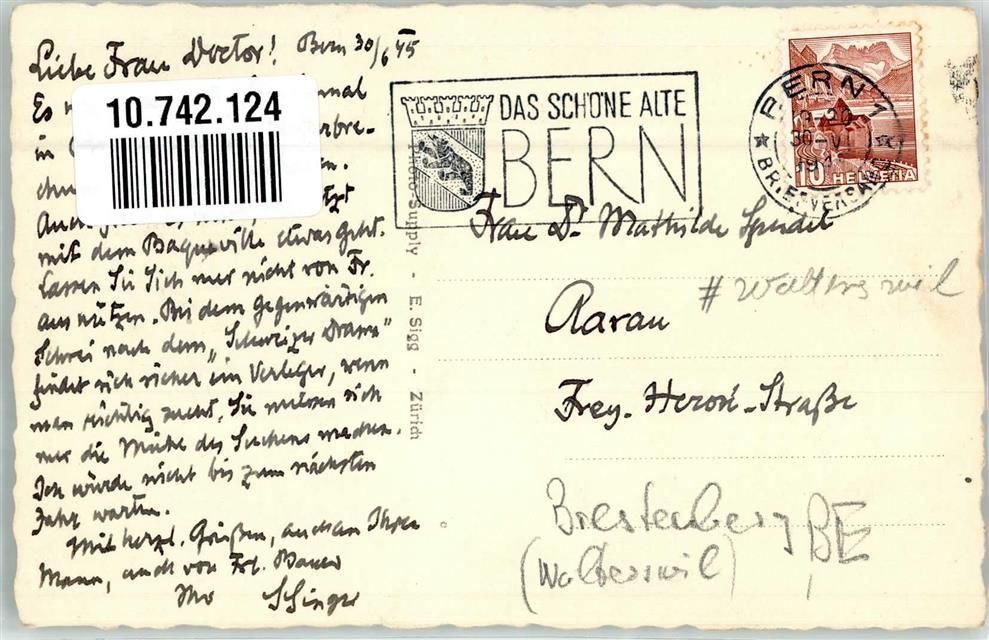 Liebe Frau Doctor! Bern 30/6 45
Es
in
mit dem etwas geht.
Lassen Sie Sich nur nicht von Fr.
ausnützen. Bei dem gegenwärtigen
Schrei nach dem „Schweizer Drama"
findet sich sicher ein Verleger, wenn
man richtig sucht. Sie müssen sich
nur die Mühe des Suchens machen.
Ich würde nicht bis zum nächsten
Jahr warten.
Mit herzl. Grüßen, auch an Ihren
Mann, auch von Frl. Bauer
Ihr
10.742.124
Photo-Supply - E. Sigg - Zürich
DAS SCHÖNE ALTE
BERN
BERN 1
30-VI
BRIEFVERSAND
10 HELVETIA
Frau Dr. Mathilde
# Walterswil
Aarau
Frey-Herosé-Straße
Brestenberg
BE
(Walterswil)